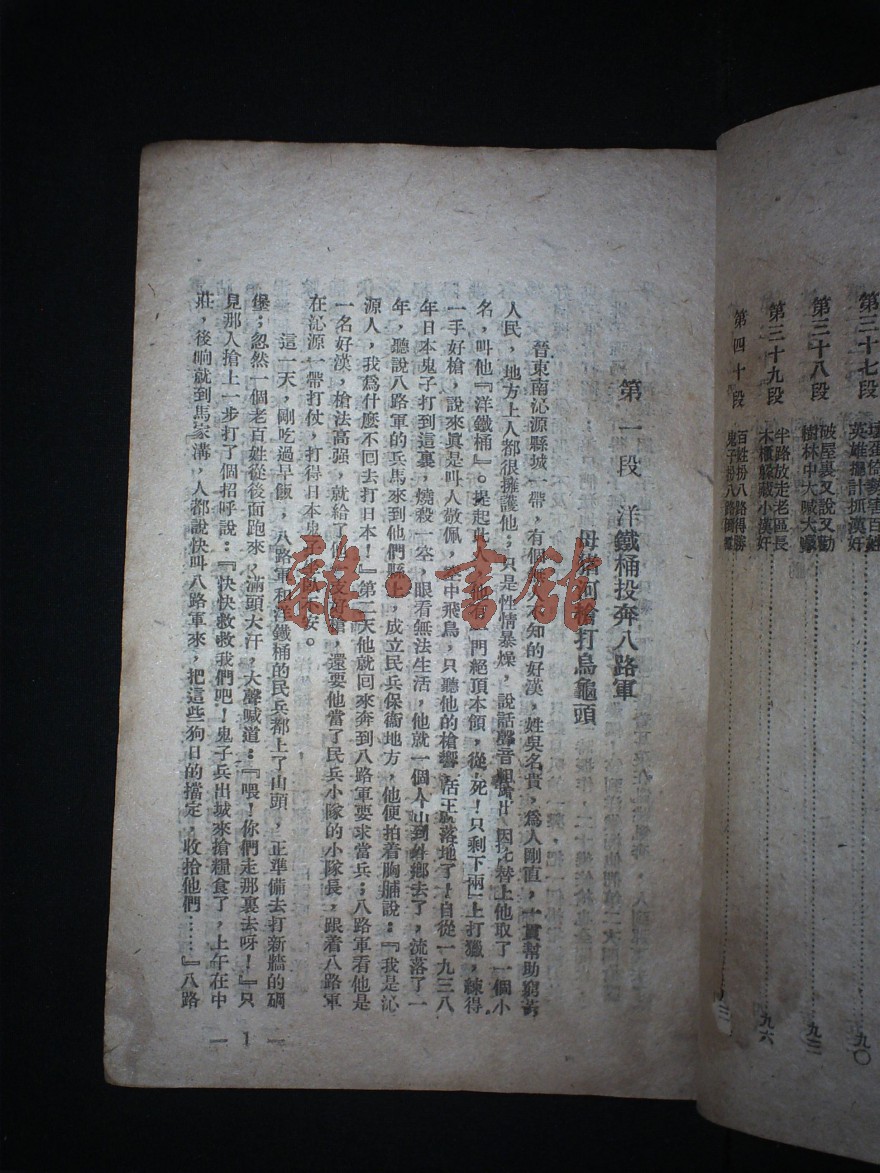 第三十七段
英雄擺計抓漢奸
九〇
第三十八段
破屋裏又說又勸
樹林中大喊大嚷
九三
第三十九段
半路放走老區長
木櫃躲藏小漢奸
九六
第四十段
百姓扮八路得勝
鬼子扮八路
第一段 洋鐵桶投奔八路軍
母豬河槍打烏龜頭
晉東南沁源縣城一帶，有個無人不知的好漢，姓吳名貴，爲人剛直，一貫幫助窮苦
人民，地方上人都很擁護他；只是性情暴燥，說話聲音粗，因此替上他取了一個小
名，叫他『洋鐵桶』。提起此人，他有一門絕頂本領，從上打獵，練得
一手好槍，說來眞是叫人敬佩，空中飛鳥，只聽他的槍響，落地了！自從一九三八
年日本鬼子打到這裏，燒殺一空，眼看無法生活，他就一個人到外鄉去了，流落了一
年，聽說八路軍的兵馬來到他們縣上，成立民兵保衞地方，他便拍着胸脯說：『我是沁
源人，我爲什麽不回去打日本！』第二天他就回來奔到八路軍要求當兵；八路軍看他是
一名好漢，槍法高强，就給了他一支好槍，還要他當了民兵小隊的小隊長，跟着八路軍
在沁源一帶打仗，打得日本鬼子坐臥不安。
這一天，剛吃過早飯，八路軍和洋鐵桶的民兵都上了山頭，正準備去打新牆的碉
堡；忽然一個老百姓從後面跑來，滿頭大汗，大聲喊道：『喂！你們走那裏去呀！』只
見那人搶上一步打了個招呼說：『快快救救我們吧！鬼子兵出城來搶糧食了，上午在中
莊，後晌就到馬家溝，人都說快叫八路軍來，把這些狗日的擋定，收拾他們……』八路
— 1 —
雜·書館